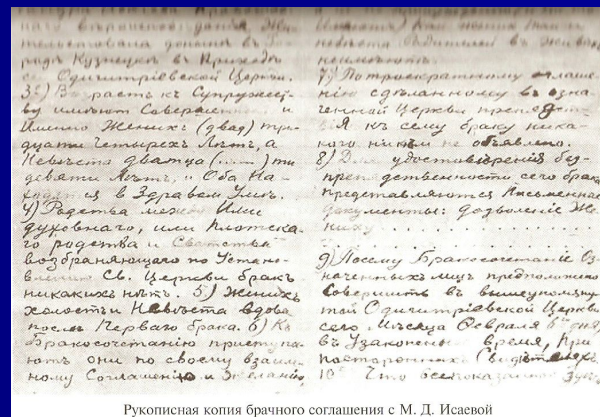 родъ Кузнецкъ въ Приходѣ
Одигитріевской Церкви.
3е) Возрастъ къ Супружест-
ву имѣютъ Совершенный и
Именно Женихъ (двад) три-
дцати четырехъ Лѣтъ, а
Невѣста двадца (....) ти
девяти Лѣтъ, и Оба На-
ходятся в Здравом Умѣ.
4) Родства между Ими
духовнаго, или Плотска-
го родства и Сватовства
возбраняющаго по Установ-
влению Св. Церкви бракъ
никакихъ нѣтъ. 5) Женихъ
холостъ и Невѣста вдова
послѣ Перваго брака. 6) Къ
Бракосочетанію приступа-
ютъ они по своему взаим-
ному Соглашению и Желанію,
неимѣютъ.
7) По троекратному оглаше-
нію сдѣланному въ озна-
ченной Церкви препятст-
вія къ сему браку ника-
кого никѣм не объявлено.
8) Для удостовѣренія без-
препятственности сего брака
представляются Письменные
документы: дозволеніе Же-
ниху . . . . .
. . . . . . . . . . . .
9) Посему Бракосочетаніе Оз-
наченныхъ лицъ предположено
Совершить въ вышеупомяну-
той Одигитріевской Церкви
сего Мѣсяца Февраля 6го дня,
въ Узаконенное время, При
посторонних Свидѣтеляхъ.
10е Что все показано Здѣсь
Рукописная копия брачного соглашения с М. Д. Исаевой